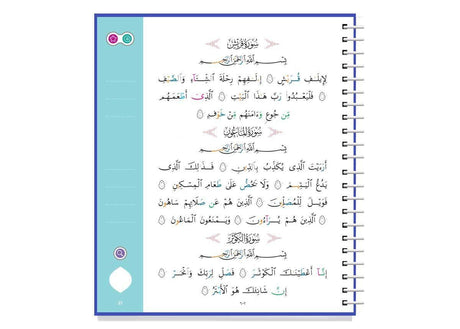 سُورَةُ قُرَيْشٍ
بِسْمِ ٱللَّهِ ٱلرَّحْمَٰنِ ٱلرَّحِيمِ
لِإِيلَٰفِ قُرَيْشٍ ۝ إِۦلَٰفِهِمْ رِحْلَةَ ٱلشِّتَآءِ وَٱلصَّيْفِ
۝ فَلْيَعْبُدُوا۟ رَبَّ هَٰذَا ٱلْبَيْتِ ۝ ٱلَّذِىٓ أَطْعَمَهُم
مِّن جُوعٍ وَءَامَنَهُم مِّنْ خَوْفٍۭ ۝
سُورَةُ ٱلْمَاعُونِ
بِسْمِ ٱللَّهِ ٱلرَّحْمَٰنِ ٱلرَّحِيمِ
أَرَءَيْتَ ٱلَّذِى يُكَذِّبُ بِٱلدِّينِ ۝ فَذَٰلِكَ ٱلَّذِى
يَدُعُّ ٱلْيَتِيمَ ۝ وَلَا يَحُضُّ عَلَىٰ طَعَامِ ٱلْمِسْكِينِ ۝
فَوَيْلٌ لِّلْمُصَلِّينَ ۝ ٱلَّذِينَ هُمْ عَن صَلَاتِهِمْ سَاهُونَ
۝ ٱلَّذِينَ هُمْ يُرَآءُونَ ۝ وَيَمْنَعُونَ ٱلْمَاعُونَ ۝
سُورَةُ ٱلْكَوْثَرِ
بِسْمِ ٱللَّهِ ٱلرَّحْمَٰنِ ٱلرَّحِيمِ
إِنَّآ أَعْطَيْنَٰكَ ٱلْكَوْثَرَ ۝ فَصَلِّ لِرَبِّكَ وَٱنْحَرْ ۝
إِنَّ شَانِئَكَ هُوَ ٱلْأَبْتَرُ ۝
٦٠٢